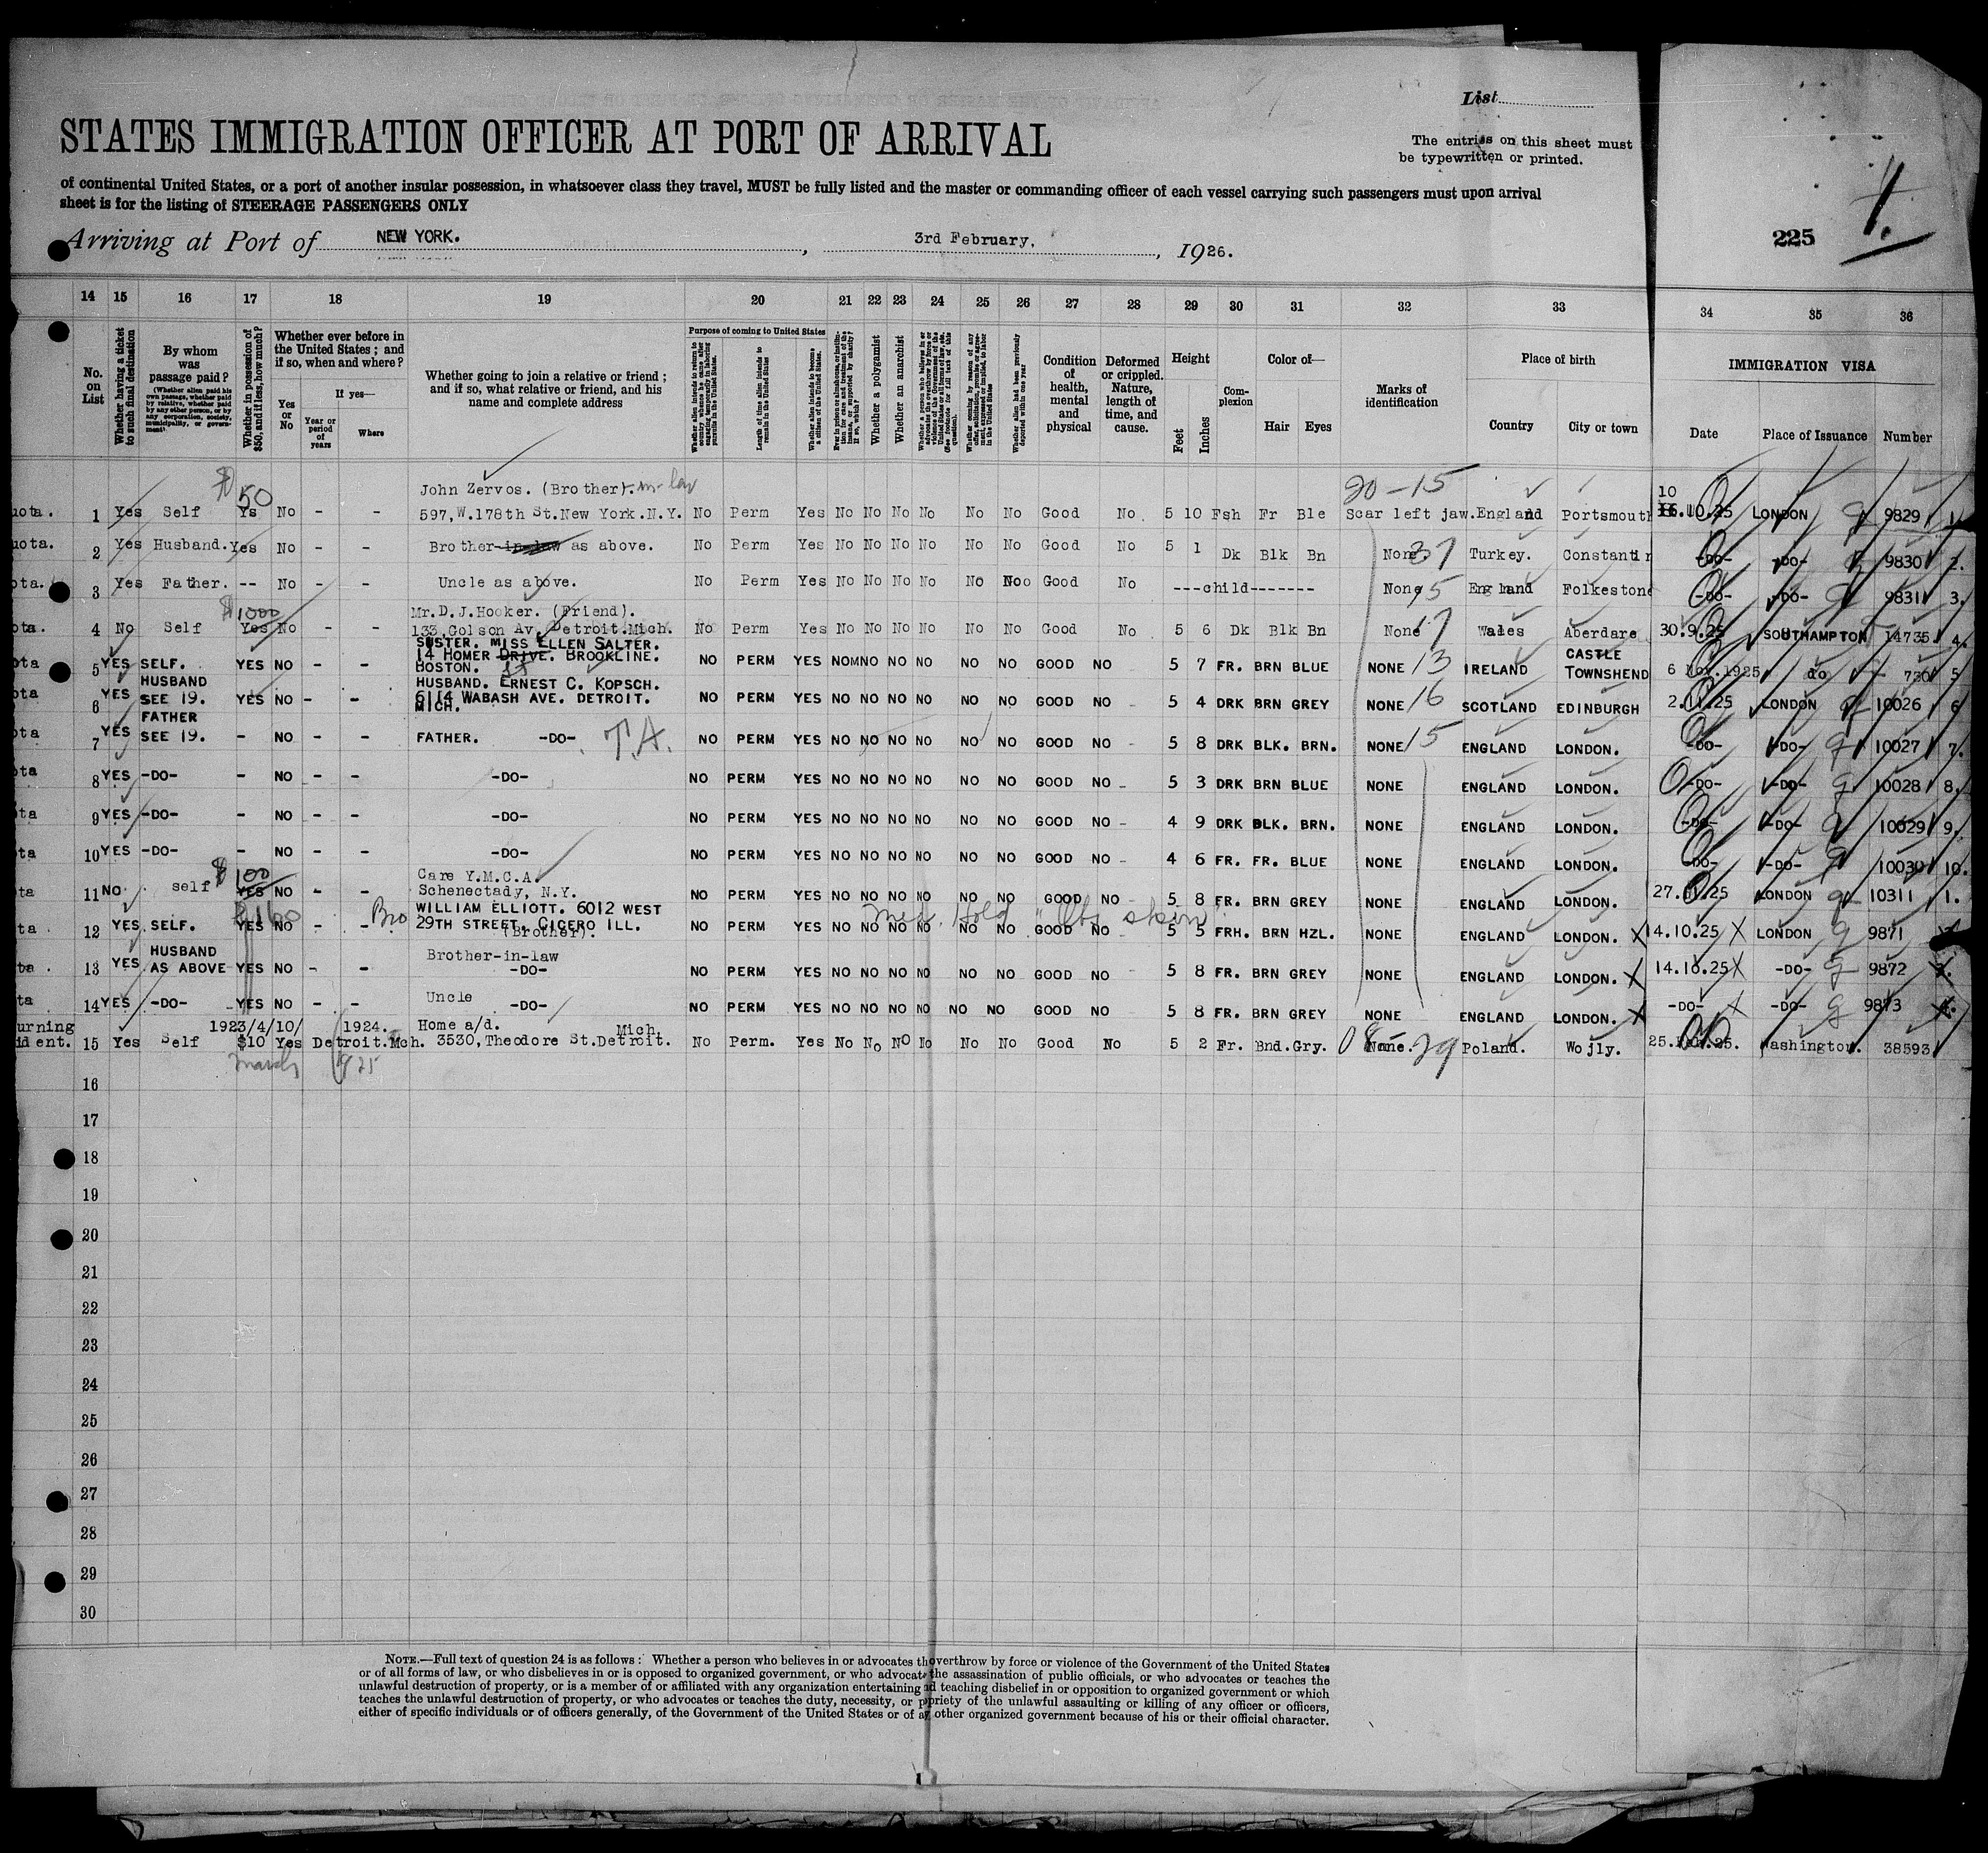 List
STATES IMMIGRATION OFFICER AT PORT OF ARRIVAL
The entries on this sheet must
be typewritten or printed.
of continental United States, or a port of another insular possession, in whatsoever class they travel, MUST be fully listed and the master or commanding officer of each vessel carrying such passengers must upon arrival
sheet is for the listing of STEERAGE PASSENGERS ONLY
Arriving at Port of NEW YORK. , 3rd February, , 1926.
225 1.
14 15 16 17 18 19 20 21 22 23 24 25 26 27 28 29 30 31 32 33 34 35 36
No. on List
Whether having a ticket to such final destination
By whom was passage paid?
(Whether alien paid his own passage, whether paid by relative, whether paid by any other person, or by any corporation, society, municipality, or government)
Whether in possession of $50, and if less, how much?
Whether ever before in the United States; and if so, when and where?
Yes or No
If yes—
Year or period of years
Where
Whether going to join a relative or friend; and if so, what relative or friend, and his name and complete address
Purpose of coming to United States
Whether alien intends to return to country whence he came after engaging temporarily in laboring pursuits in the United States.
Length of time alien intends to remain in the United States
Whether alien intends to become a citizen of the United States.
Ever in prison or almshouse, or institution for care and treatment of the insane, or supported by charity? If so, which?
Whether a polygamist
Whether an anarchist
Whether a person who believes in or advocates the overthrow by force or violence of the Government of the United States or all forms of law, etc. (See footnote for full text of this question).
Whether coming by reason of any offer, solicitation, promise, or agreement, expressed or implied, to labor in the United States
Whether alien had been previously deported within one year
Condition of health, mental and physical
Deformed or crippled. Nature, length of time, and cause.
Height
Feet
Inches
Complexion
Color of—
Hair Eyes
Marks of identification
Place of birth
Country City or town
IMMIGRATION VISA
Date Place of Issuance Number
$50 John Zervos. (Brother). in-law 20-15 10
uota. 1 Yes Self Ys No - - 597,W.178th St.New York.N.Y. No Perm Yes No No No No No No Good No 5 10 Fsh Fr Ble Scar left jaw. England Portsmouth 10.25 LONDON 9829 1.
uota. 2 Yes Husband. Yes No - - Brother-in-law as above. No Perm Yes No No No No No No Good No 5 1 Dk Blk Bn None 37 Turkey. Constantin -DO- -DO- 9830 2.
ota. 3 Yes Father. -- No - - Uncle as above. No Perm Yes No No No No No Noo Good No ---child------- None 5 England Folkestone -DO- -DO- 9831 3.
$1000 Mr. D.J.Hooker. (Friend).
ota. 4 No Self Yes No - - 133,Golson Av. Detroit.Mich. No Perm Yes No No No No No No Good No 5 6 Dk Blk Bn None 17 Wales Aberdare 30.9.25 SOUTHAMPTON 14735. 4.
SUSTER. MISS ELLEN SALTER. CASTLE
ota 5 YES SELF. YES NO - - 14 HOMER DRIVE. BROOKLINE. NO PERM YES NOMNO NO NO NO NO GOOD NO 5 7 FR. BRN BLUE NONE 13 IRELAND TOWNSHEND 6 Nov.1925 do 730 5
BOSTON. St
HUSBAND HUSBAND. ERNEST C. KOPSCH.
ota 6 YES SEE 19. YES NO - - 6114 WABASH AVE. DETROIT. NO PERM YES NO NO NO NO NO NO GOOD NO 5 4 DRK BRN GREY NONE 16 SCOTLAND EDINBURGH 2.11.25 LONDON 10026 6
MICH.
FATHER
ota 7 YES SEE 19. - NO - - FATHER. -DO- T.A. NO PERM YES NO NO NO NO NO NO GOOD NO - 5 8 DRK BLK. BRN. NONE 15 ENGLAND LONDON. -DO- -DO- 10027 7.
ota 8 YES -DO- - NO - - -DO- NO PERM YES NO NO NO NO NO NO GOOD NO - 5 3 DRK BRN BLUE NONE ENGLAND LONDON. -DO- -DO- 10028 8.
ota 9 YES -DO- - NO - - -DO- NO PERM YES NO NO NO NO NO NO GOOD NO - 4 9 DRK BLK. BRN. NONE ENGLAND LONDON. -DO- -DO- 10029 9.
ota 10 YES -DO- - NO - - -DO- NO PERM YES NO NO NO NO NO NO GOOD NO - 4 6 FR. FR. BLUE NONE ENGLAND LONDON. -DO- -DO- 10030 10.
$100 Care Y.M.C.A.
ta 11 NO self YES NO - - Schenectady, N.Y. NO PERM YES NO NO NO NO NO NO GOOD NO - 5 8 FR. BRN GREY NONE ENGLAND LONDON. 27.11.25 LONDON 10311 1.
$160 Bro WILLIAM ELLIOTT. 6012 WEST Med. Hold
ta 12 YES SELF. YES NO - - 29TH STREET. CICERO ILL. NO PERM YES NO NO NO NO NO NO GOOD NO 5 5 FRH. BRN HZL. NONE ENGLAND LONDON. X 14.10.25 X LONDON 9871
(Brother).
HUSBAND Brother-in-law
ta . 13 YES AS ABOVE YES NO - - -DO- NO PERM YES NO NO NO NO NO NO GOOD NO 5 8 FR. BRN GREY NONE ENGLAND LONDON. X 14.10.25 X -DO- 9872 3.
ta 14 YES -DO- YES NO - - Uncle -DO- NO PERM YES NO NO NO NO NO NO GOOD NO 5 8 FR. BRN GREY NONE ENGLAND LONDON. X -DO- X -DO- 9873 4.
urning 1923/4/10/ 1924. Home a/d. Mich.
ident. 15 Yes Self $10 Yes Detroit.Mch. 3530,Theodore St.Detroit. No Perm. Yes No No No No No No Good No 5 2 Fr. Bnd.Gry. None. 29 Poland. Wojly. 25. .25. Washington. 38593
March 1925
16
17
18
19
20
21
22
23
24
25
26
27
28
29
30
NOTE.—Full text of question 24 is as follows: Whether a person who believes in or advocates th overthrow by force or violence of the Government of the United States
or of all forms of law, or who disbelieves in or is opposed to organized government, or who advocat the assassination of public officials, or who advocates or teaches the
unlawful destruction of property, or is a member of or affiliated with any organization entertaining d teaching disbelief in or opposition to organized government or which
teaches the unlawful destruction of property, or who advocates or teaches the duty, necessity, or p priety of the unlawful assaulting or killing of any officer or officers,
either of specific individuals or of officers generally, of the Government of the United States or of a other organized government because of his or their official character.